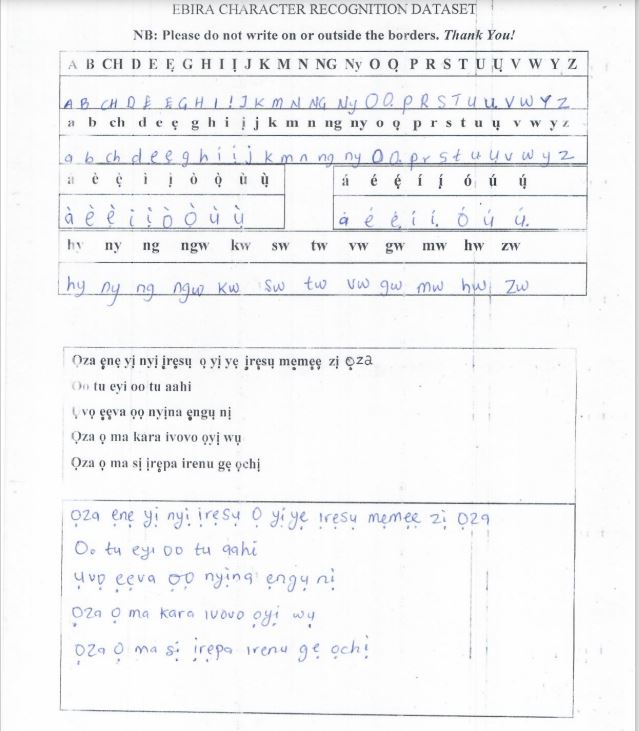 EBIRA CHARACTER RECOGNITION DATASET
NB: Please do not write on or outside the borders. Thank You!
A B CH D E Ẹ G H I Ị J K M N NG Ny O Ọ P R S T U Ụ V W Y Z
A B CH D E Ẹ G H I Ị J K M N NG Ny O Ọ P R S T U Ụ V W Y Z
a b ch d e ẹ g h i ị j k m n ng ny o ọ p r s t u ụ v w y z
a b ch d e ẹ g h i ị j k m n ng ny o ọ p r s t u ụ v w y z
à è ẹ̀ ì ị̀ ò ọ̀ ù ụ̀ á é ẹ́ í ị́ ó ú ụ́
à è ẹ̀ ì ị̀ ò ọ̀ ù ụ̀ á é ẹ́ í ị́ ó ú ụ́
hy ny ng ngw kw sw tw vw gw mw hw zw
hy ny ng ngw kw sw tw vw gw mw hw zw
Ọza ẹnẹ yị nyị ịrẹsụ ọ yị yẹ ịrẹsụ mẹmẹẹ zị ọza
Oo tu eyi oo tu aahi
Ụvọ ẹẹva ọọ nyịna ẹngụ nị
Ọza ọ ma kara ivovo ọyị wụ
Ọza ọ ma sị ịrẹpa irenu gẹ ọchị
Ọza ẹnẹ yị nyị irẹsụ Ọ yị yẹ irẹsụ mẹmẹẹ zị Ọza
Oo tu eyi oo tu aahi
ụvọ ẹẹva ọọ nyịna ẹngụ nị
Ọza Ọ ma kara ivovo ọyị wụ
Ọza Ọ ma sị ịrẹpa irenu gẹ ọchị